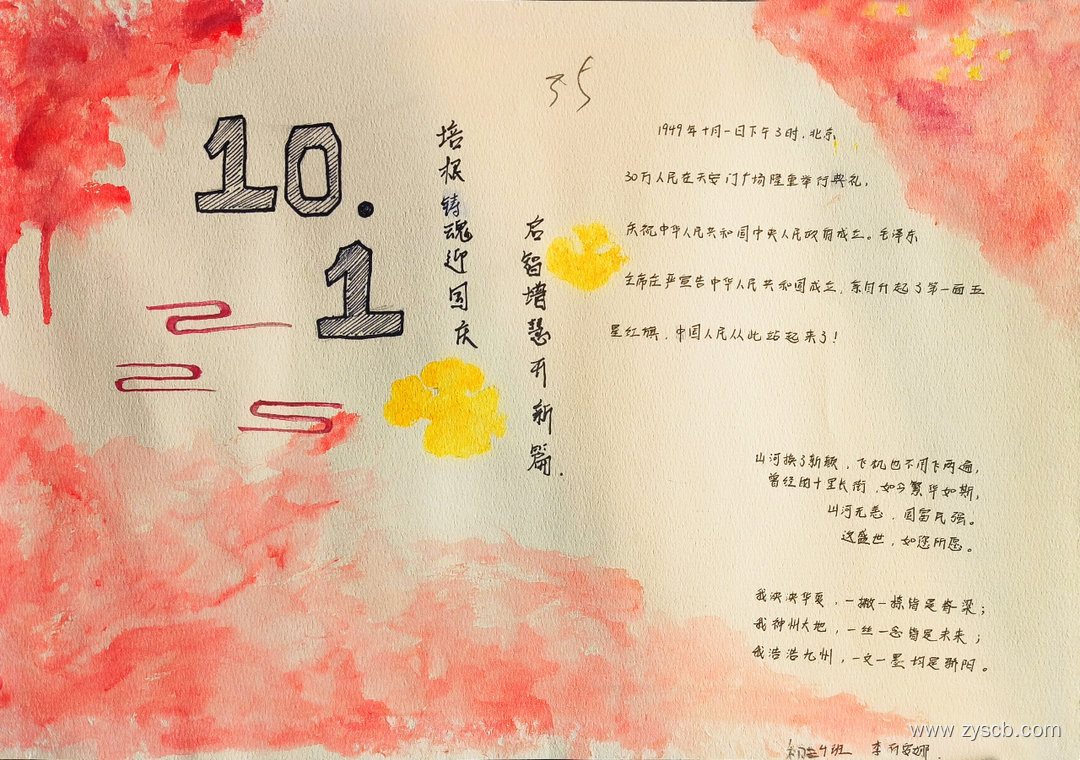 10.
1
35
培根铸魂迎国庆
启智增慧开新篇.
1949年十月一日下午3时,北京
30万人民在天安门广场隆重举行典礼,
庆祝中华人民共和国中央人民政府成立。毛泽东
主席庄严宣告中华人民共和国成立,亲自升起了第一面五
星红旗,中国人民从此站起来了!
山河换了新颜,飞机也不用飞两遍,
曾经的十里长街,如今繁华如斯,
山河无恙,国富民强。
这盛世,如您所愿。
我泱泱华夏,一撇一捺皆是脊梁;
我神州大地,一丝一念皆是未来;
我浩浩九州,一文一墨均是骄阳。
班 李
www.zyscb.com